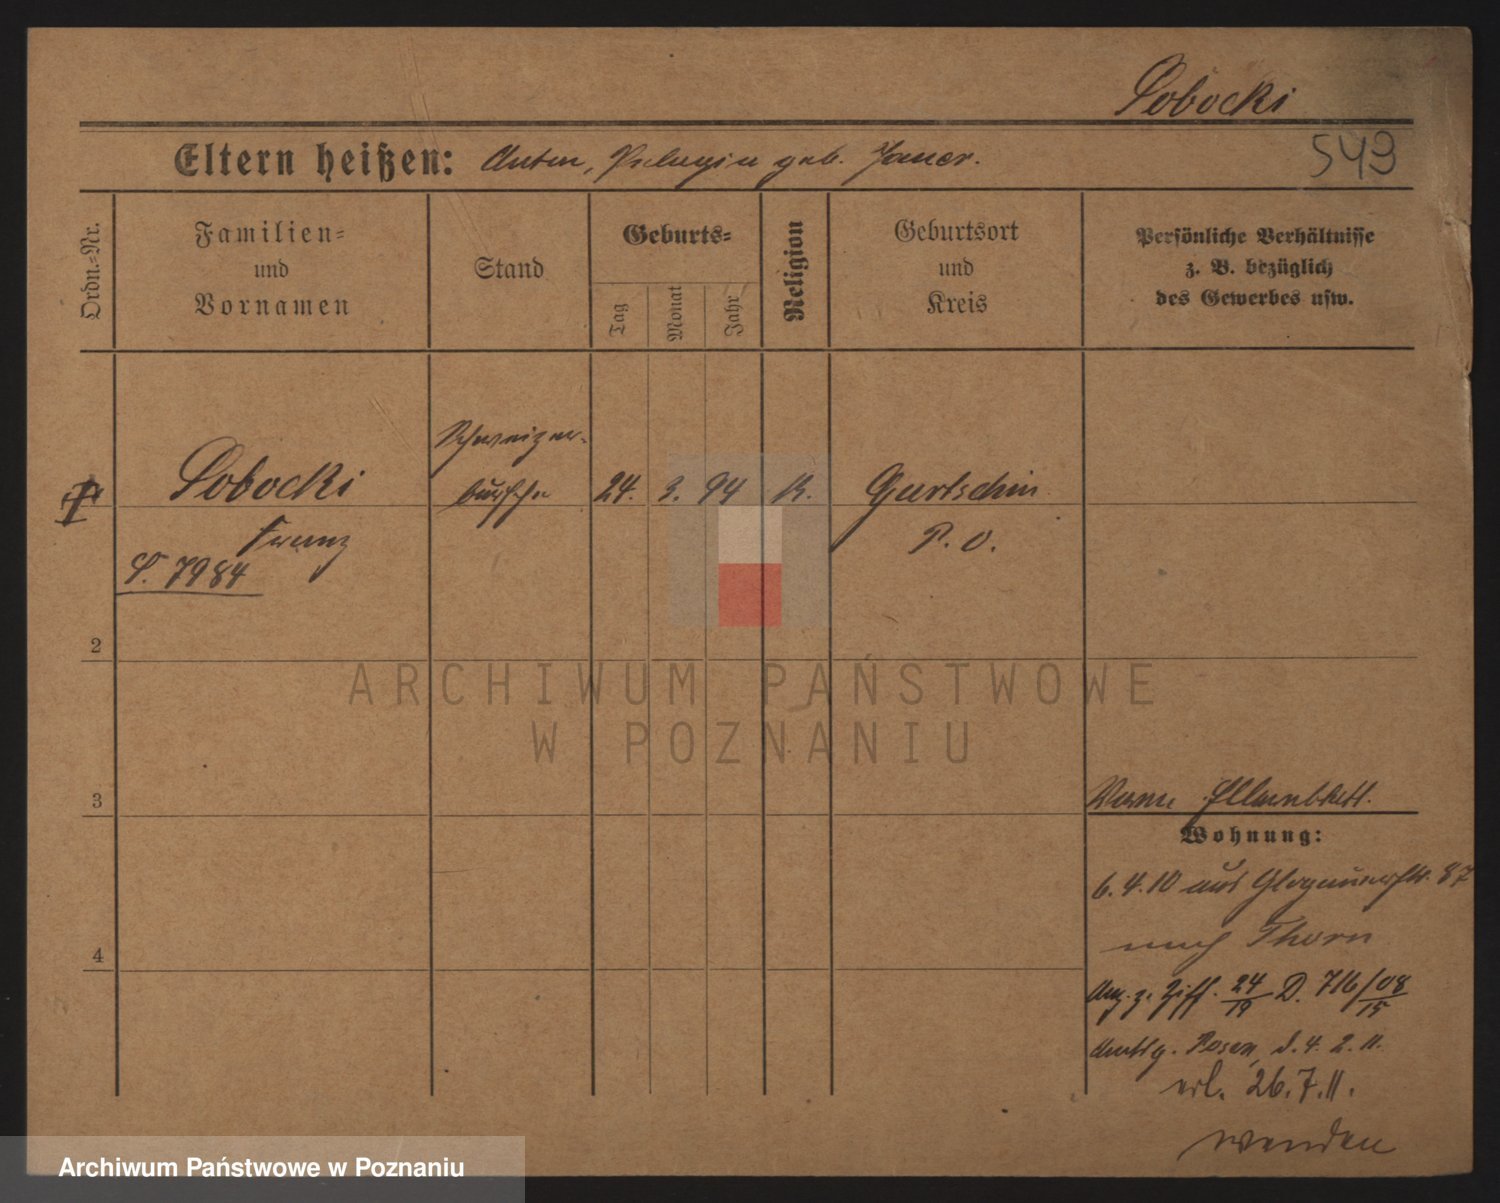 Sobocki
543
Eltern heißen: Anton, Pelagia geb. Jauer.
Ordn.-Nr.
Familien-
und
Vornamen
Stand
Geburts-
Tag
Monat
Jahr
Religion
Geburtsort
und
Kreis
Persönliche Verhältnisse
z. B. bezüglich
des Gewerbes usw.
Schweizer-
Sobocki bursche 24. 3. 94 K. Gurtschin
Franz P. O.
S. 7984
2
3
4
Wohnung:
6. 4. 10 aus Glogauerstr. 87
nach Thorn
24/19 D. 716/08 15
Amtsg. Posen, d. 4. 2. 11.
erl. 26. 7. 11.
wenden
ARCHIWUM PAŃSTWOWE
W POZNANIU
Archiwum Państwowe w Poznaniu